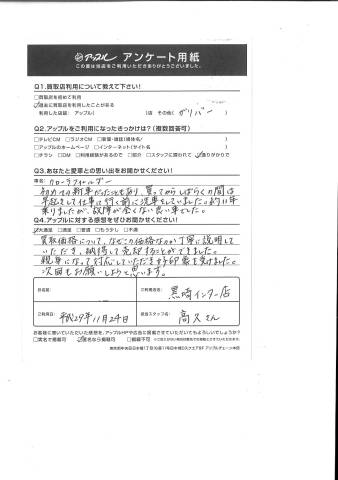 アップル アンケート用紙
この度は当店をご利用いただきありがとうございました。
Q1.買取店利用について教えて下さい!
□買取店を初めて利用
☑過去に買取店を利用したことがある
利用した店舗： アップル( )店 その他( ガリバー )
Q2.アップルをご利用になったきっかけは?(複数回答可)
□テレビCM □ラジオCM □新聞・雑誌(媒体名/ )
□アップルのホームページ □インターネット(サイト名 )
□チラシ □DM □利用経験があるので □紹介 □スタッフに誘われて ☑通りがかりで
Q3.あなたと愛車との思い出をお聞かせください!
車名： カローラフィールダー
初めての新車だったこともあり、買ってからしばらくの間は
早起きして仕事に行く前に洗車をしていました。約11年
乗りましたが、故障が全くない良い車でした。
Q4.アップルに対する感想をぜひお聞かせください!
☑大満足 □満足 □普通 □もう少し □不満
買取価格について、なぜこの価格なのか丁寧に説明して
いただき、納得して売却することができました。
親身になって対応していただき好印象を受けました。
次回もお願いしようと思います。
お名前
ご利用店名
黒崎インター店
ご利用日
平成29年11月24日
担当スタッフ名
高久さん
お客様に書いていただいた感想を、アップルHPや広告に掲載させていただいてもよろしいでしょうか?
□実名で掲載可 ☑匿名なら掲載可 □掲載不可